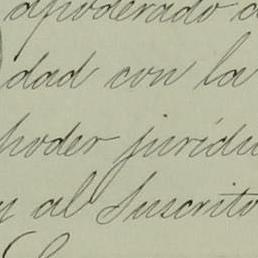 apoderado
dad con la
poder juridi
y al Suscrito